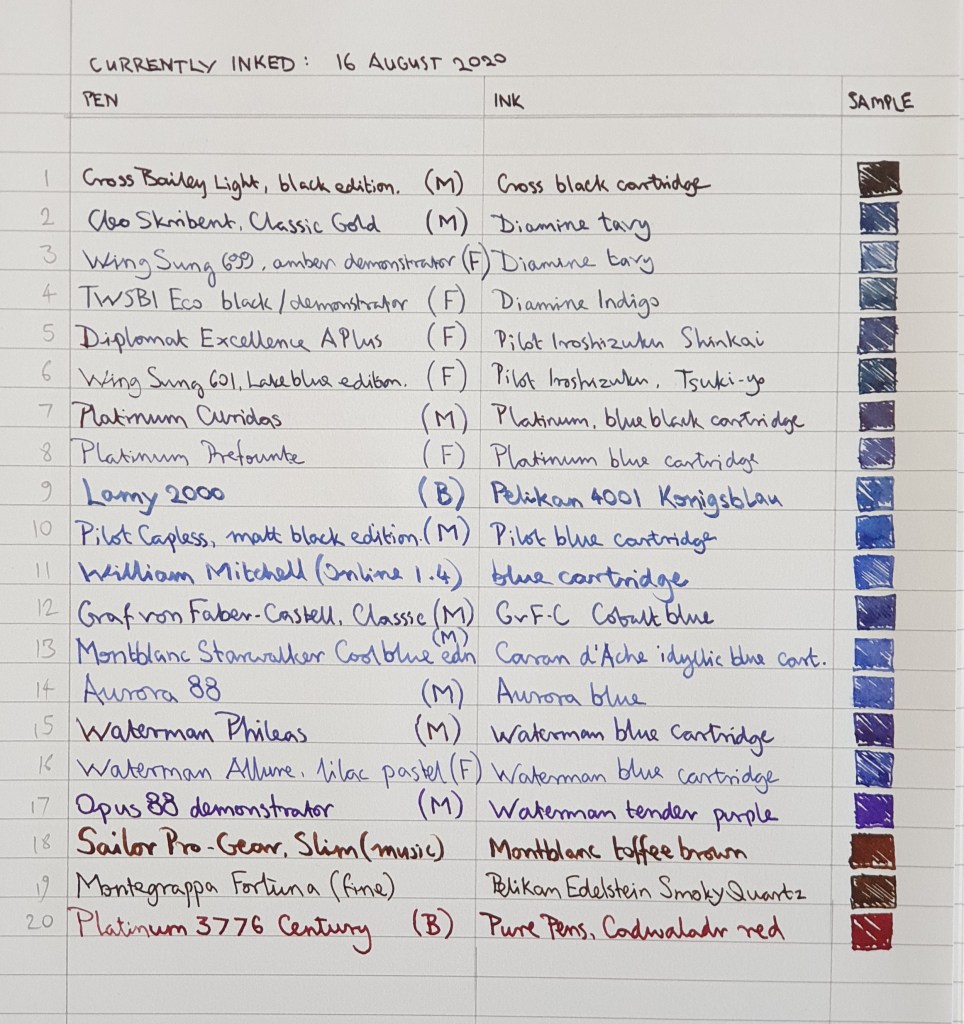 CURRENTLY INKED: 16 AUGUST 2020
PEN INK SAMPLE
1 Cross Bailey Light, black edition. (M) Cross black cartridge
2 Cleo Skribent, Classic Gold (M) Diamine tavy
3 Wing Sung 699, amber demonstrator (F) Diamine tavy
4 TWSBI Eco black/demonstrator (F) Diamine Indigo
5 Diplomat Excellence APlus (F) Pilot Iroshizuku Shinkai
6 Wing Sung 601, Lake blue edition. (F) Pilot Iroshizuku, Tsuki-yo
7 Platinum Curidas (M) Platinum, blue black cartridge
8 Platinum Prefounte (F) Platinum blue cartridge
9 Lamy 2000 (B) Pelikan 4001 Konigsblau
10 Pilot Capless, matt black edition. (M) Pilot blue cartridge
11 William Mitchell (Online 1.4) blue cartridge
12 Graf von Faber-Castell, Classic (M) GvF-C Cobalt blue
13 Montblanc Starwalker Cool blue edn (M) Caran d'Ache idyllic blue cart.
14 Aurora 88 (M) Aurora blue
15 Waterman Phileas (M) Waterman blue cartridge
16 Waterman Allure, lilac pastel (F) Waterman blue cartridge
17 Opus 88 demonstrator (M) Waterman tender purple
18 Sailor Pro-Gear, Slim (music) Montblanc toffee brown
19 Montegrappa Fortuna (fine) Pelikan Edelstein Smoky Quartz
20 Platinum 3776 Century (B) Pure Pens, Cadwaladr red